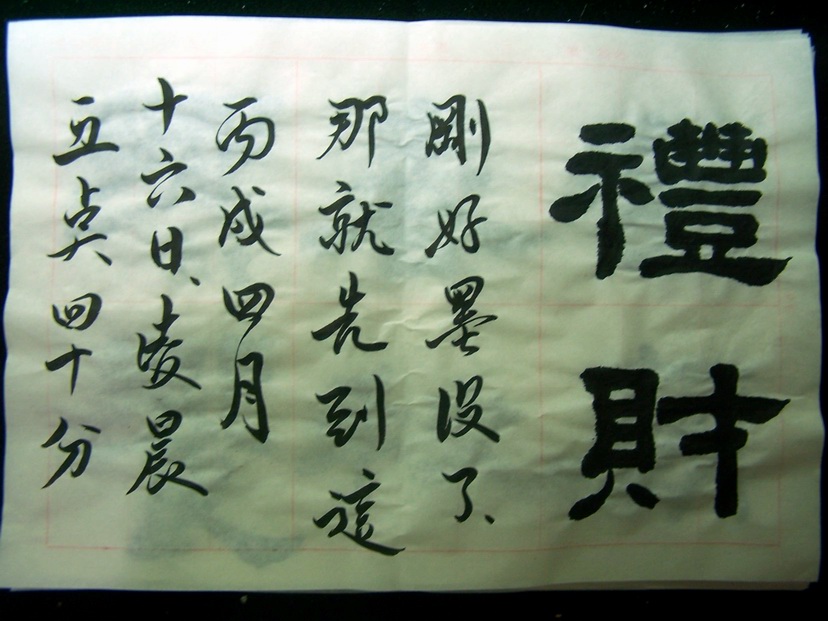 禮財
剛好墨没了、
那就先到這
丙戌四月
十六日、凌晨
五奌四十分